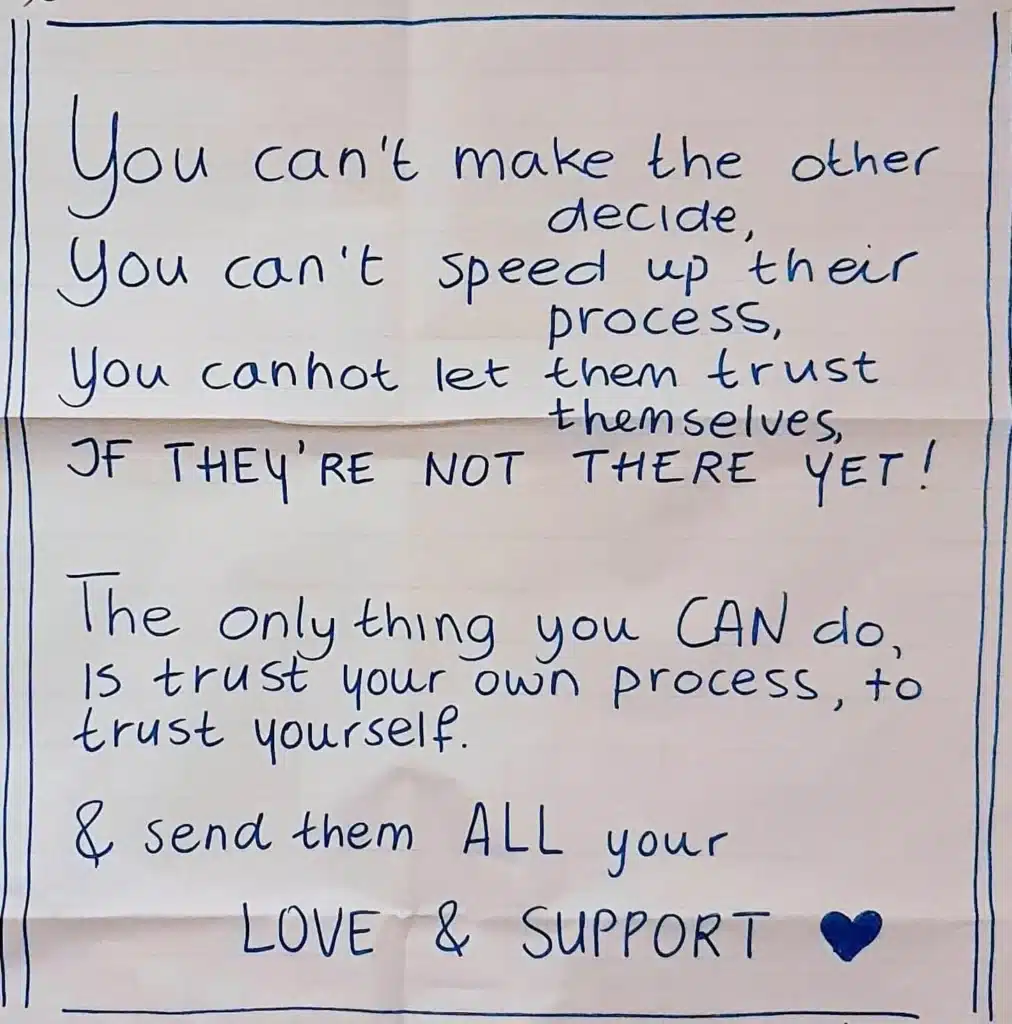 You can't make the other
decide,
You can't speed up their
process,
you cannot let them trust
themselves,
IF THEY'RE NOT THERE YET!
The only thing you CAN do,
is trust your own process, to
trust yourself.
& send them ALL your
LOVE & SUPPORT ♥